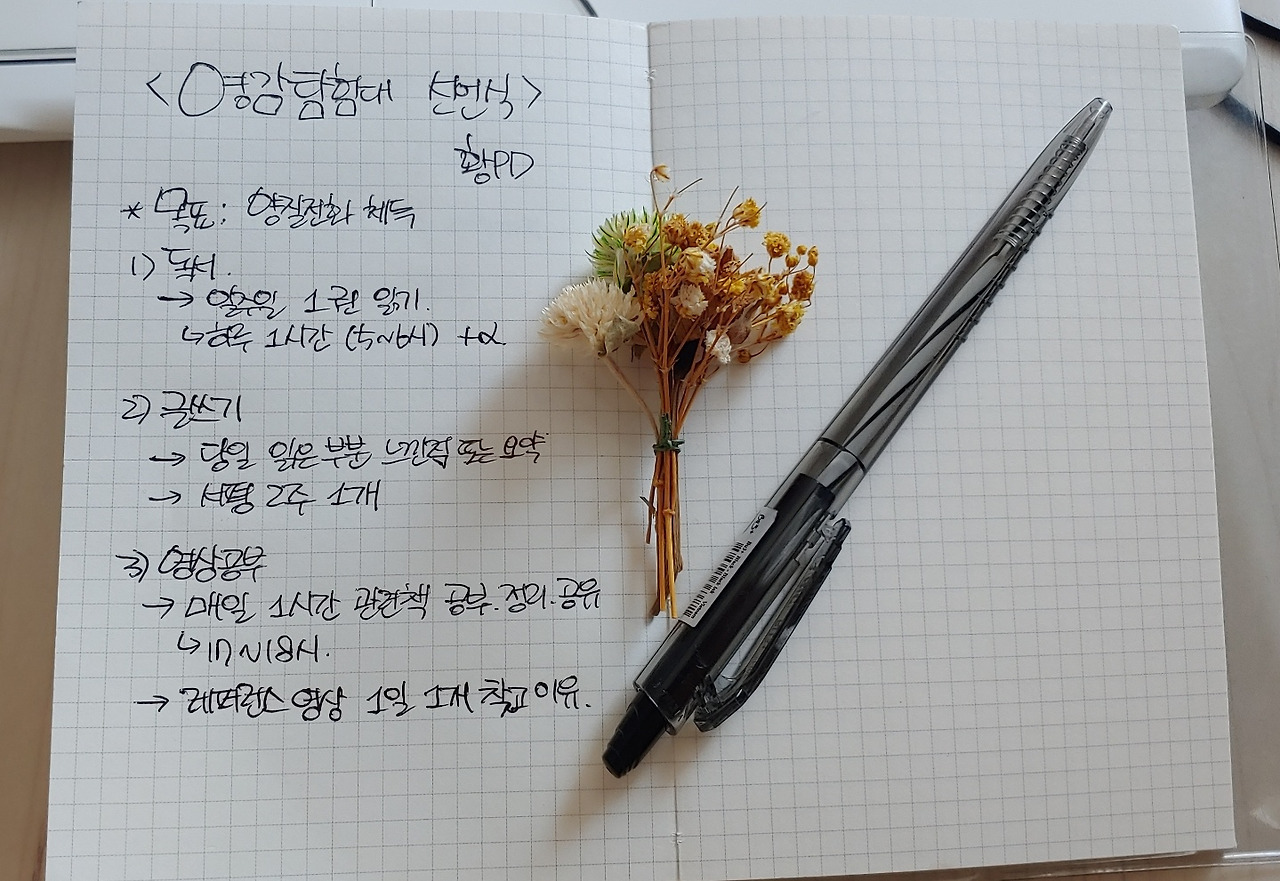 <영감탐험대 선언식>
황PD
* 목표: 양질전화 체득
1) 독서.
→ 일주일 1권 읽기.
↳하루 1시간 (5~6시) +α
2) 글쓰기
→ 당일 읽은 부분 느낀점 또는 요약
→ 서평 2주 1개
3) 영상공부
→ 매일 1시간 관련책 공부.정리.공유
↳17~18시.
→ 레퍼런스 영상 1일 1개 찾고 이유.